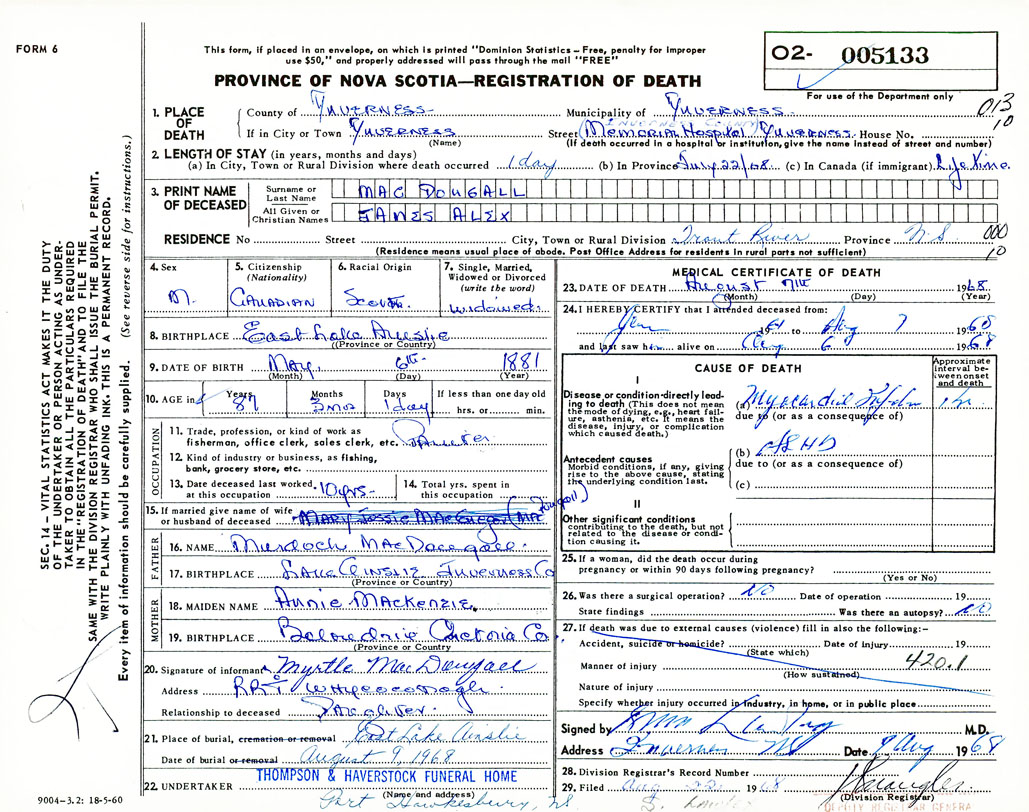 FORM 6
This form, if placed in an envelope, on which is printed "Dominion Statistics – Free, penalty for improper
use $50," and properly addressed will pass through the mail "FREE"
PROVINCE OF NOVA SCOTIA—REGISTRATION OF DEATH
O2- 005133
For use of the Department only
013
10
1. PLACE OF DEATH
County of Inverness Municipality of Inverness
INVERNESS COUNTY
If in City or Town Inverness Street Memorial Hospital Inverness House No.
(Name) (If death occurred in a hospital or institution, give the name instead of street and number)
2. LENGTH OF STAY (in years, months and days)
(a) In City, Town or Rural Division where death occurred 1 day (b) In Province July 22/08 (c) In Canada (if immigrant) Life time
3. PRINT NAME OF DECEASED
Surname or Last Name MAC DOUGALL
All Given or Christian Names JAMES ALEX
RESIDENCE No Street City, Town or Rural Division Trout River Province N.S. 000
(Residence means usual place of abode. Post Office Address for residents in rural parts not sufficient) 10
4. Sex M.
5. Citizenship (Nationality) CANADIAN
6. Racial Origin Scotch
7. Single, Married, Widowed or Divorced (write the word) widowed
8. BIRTHPLACE East Lake Ainslie
(Province or Country)
9. DATE OF BIRTH May, 6th 1881
(Month) (Day) (Year)
10. AGE in Years 87 Months 3 mos Days 1 day If less than one day old hrs. or min.
OCCUPATION
11. Trade, profession, or kind of work as fisherman, office clerk, sales clerk, etc. Farmer
12. Kind of industry or business, as fishing, bank, grocery store, etc.
13. Date deceased last worked at this occupation 10 yrs-
14. Total yrs. spent in this occupation
15. If married give name of wife or husband of deceased Mary Jessie MacGregor (Mac Dougall)
FATHER
16. NAME Murdoch MacDougall
17. BIRTHPLACE Lake Ainslie Inverness Co
(Province or Country)
MOTHER
18. MAIDEN NAME Annie MacKenzie
19. BIRTHPLACE Victoria Co
(Province or Country)
20. Signature of informant Myrtle MacDougall
Address RR 1 Whycocomagh
Relationship to deceased
21. Place of burial, cremation or removal East Lake Ainslie
Date of burial or removal August 9, 1968
THOMPSON & HAVERSTOCK FUNERAL HOME
22. UNDERTAKER (Name and address)
Port Hawkesbury, NS
9004–3.2: 18-5-60
MEDICAL CERTIFICATE OF DEATH
23. DATE OF DEATH August 7th 1968
(Month) (Day) (Year)
24. I HEREBY CERTIFY that I attended deceased from:
Jan 19 to Aug 7 1968
and last saw h alive on Aug 6 1968
CAUSE OF DEATH
Approximate interval between onset and death
I
Disease or condition directly leading to death (This does not mean the mode of dying, e.g., heart failure, asthenia, etc. It means the disease, injury, or complication which caused death.)
(a) Myocardial
due to (or as a consequence of)
Antecedent causes
Morbid conditions, if any, giving rise to the above cause, stating the underlying condition last.
(b) ASHD
due to (or as a consequence of)
(c)
II
Other significant conditions
contributing to the death, but not related to the disease or condition causing it.
25. If a woman, did the death occur during
pregnancy or within 90 days following pregnancy?
(Yes or No)
26. Was there a surgical operation? NO Date of operation 19
State findings Was there an autopsy? NO
27. If death was due to external causes (violence) fill in also the following:-
Accident, suicide or homicide? Date of injury 19
(State which)
Manner of injury 420.1
(How sustained)
Nature of injury
Specify whether injury occurred in industry, in home, or in public place
Signed by M.D.
Address Inverness NS Date 9 Aug 1968
28. Division Registrar's Record Number
29. Filed Aug 22 1968
(Division Registrar)
DEPUTY REGISTRAR GENERAL
SEC. 14 – VITAL STATISTICS ACT MAKES IT THE DUTY
OF THE UNDERTAKER OR PERSON ACTING AS UNDER-
TAKER TO OBTAIN ALL THE PARTICULARS REQUIRED
IN THE "REGISTRATION OF DEATH" AND TO FILE THE
SAME WITH THE DIVISION REGISTRAR WHO SHALL ISSUE THE BURIAL PERMIT.
WRITE PLAINLY WITH UNFADING INK. THIS IS A PERMANENT RECORD.
Every item of information should be carefully supplied. (See reverse side for instructions.)